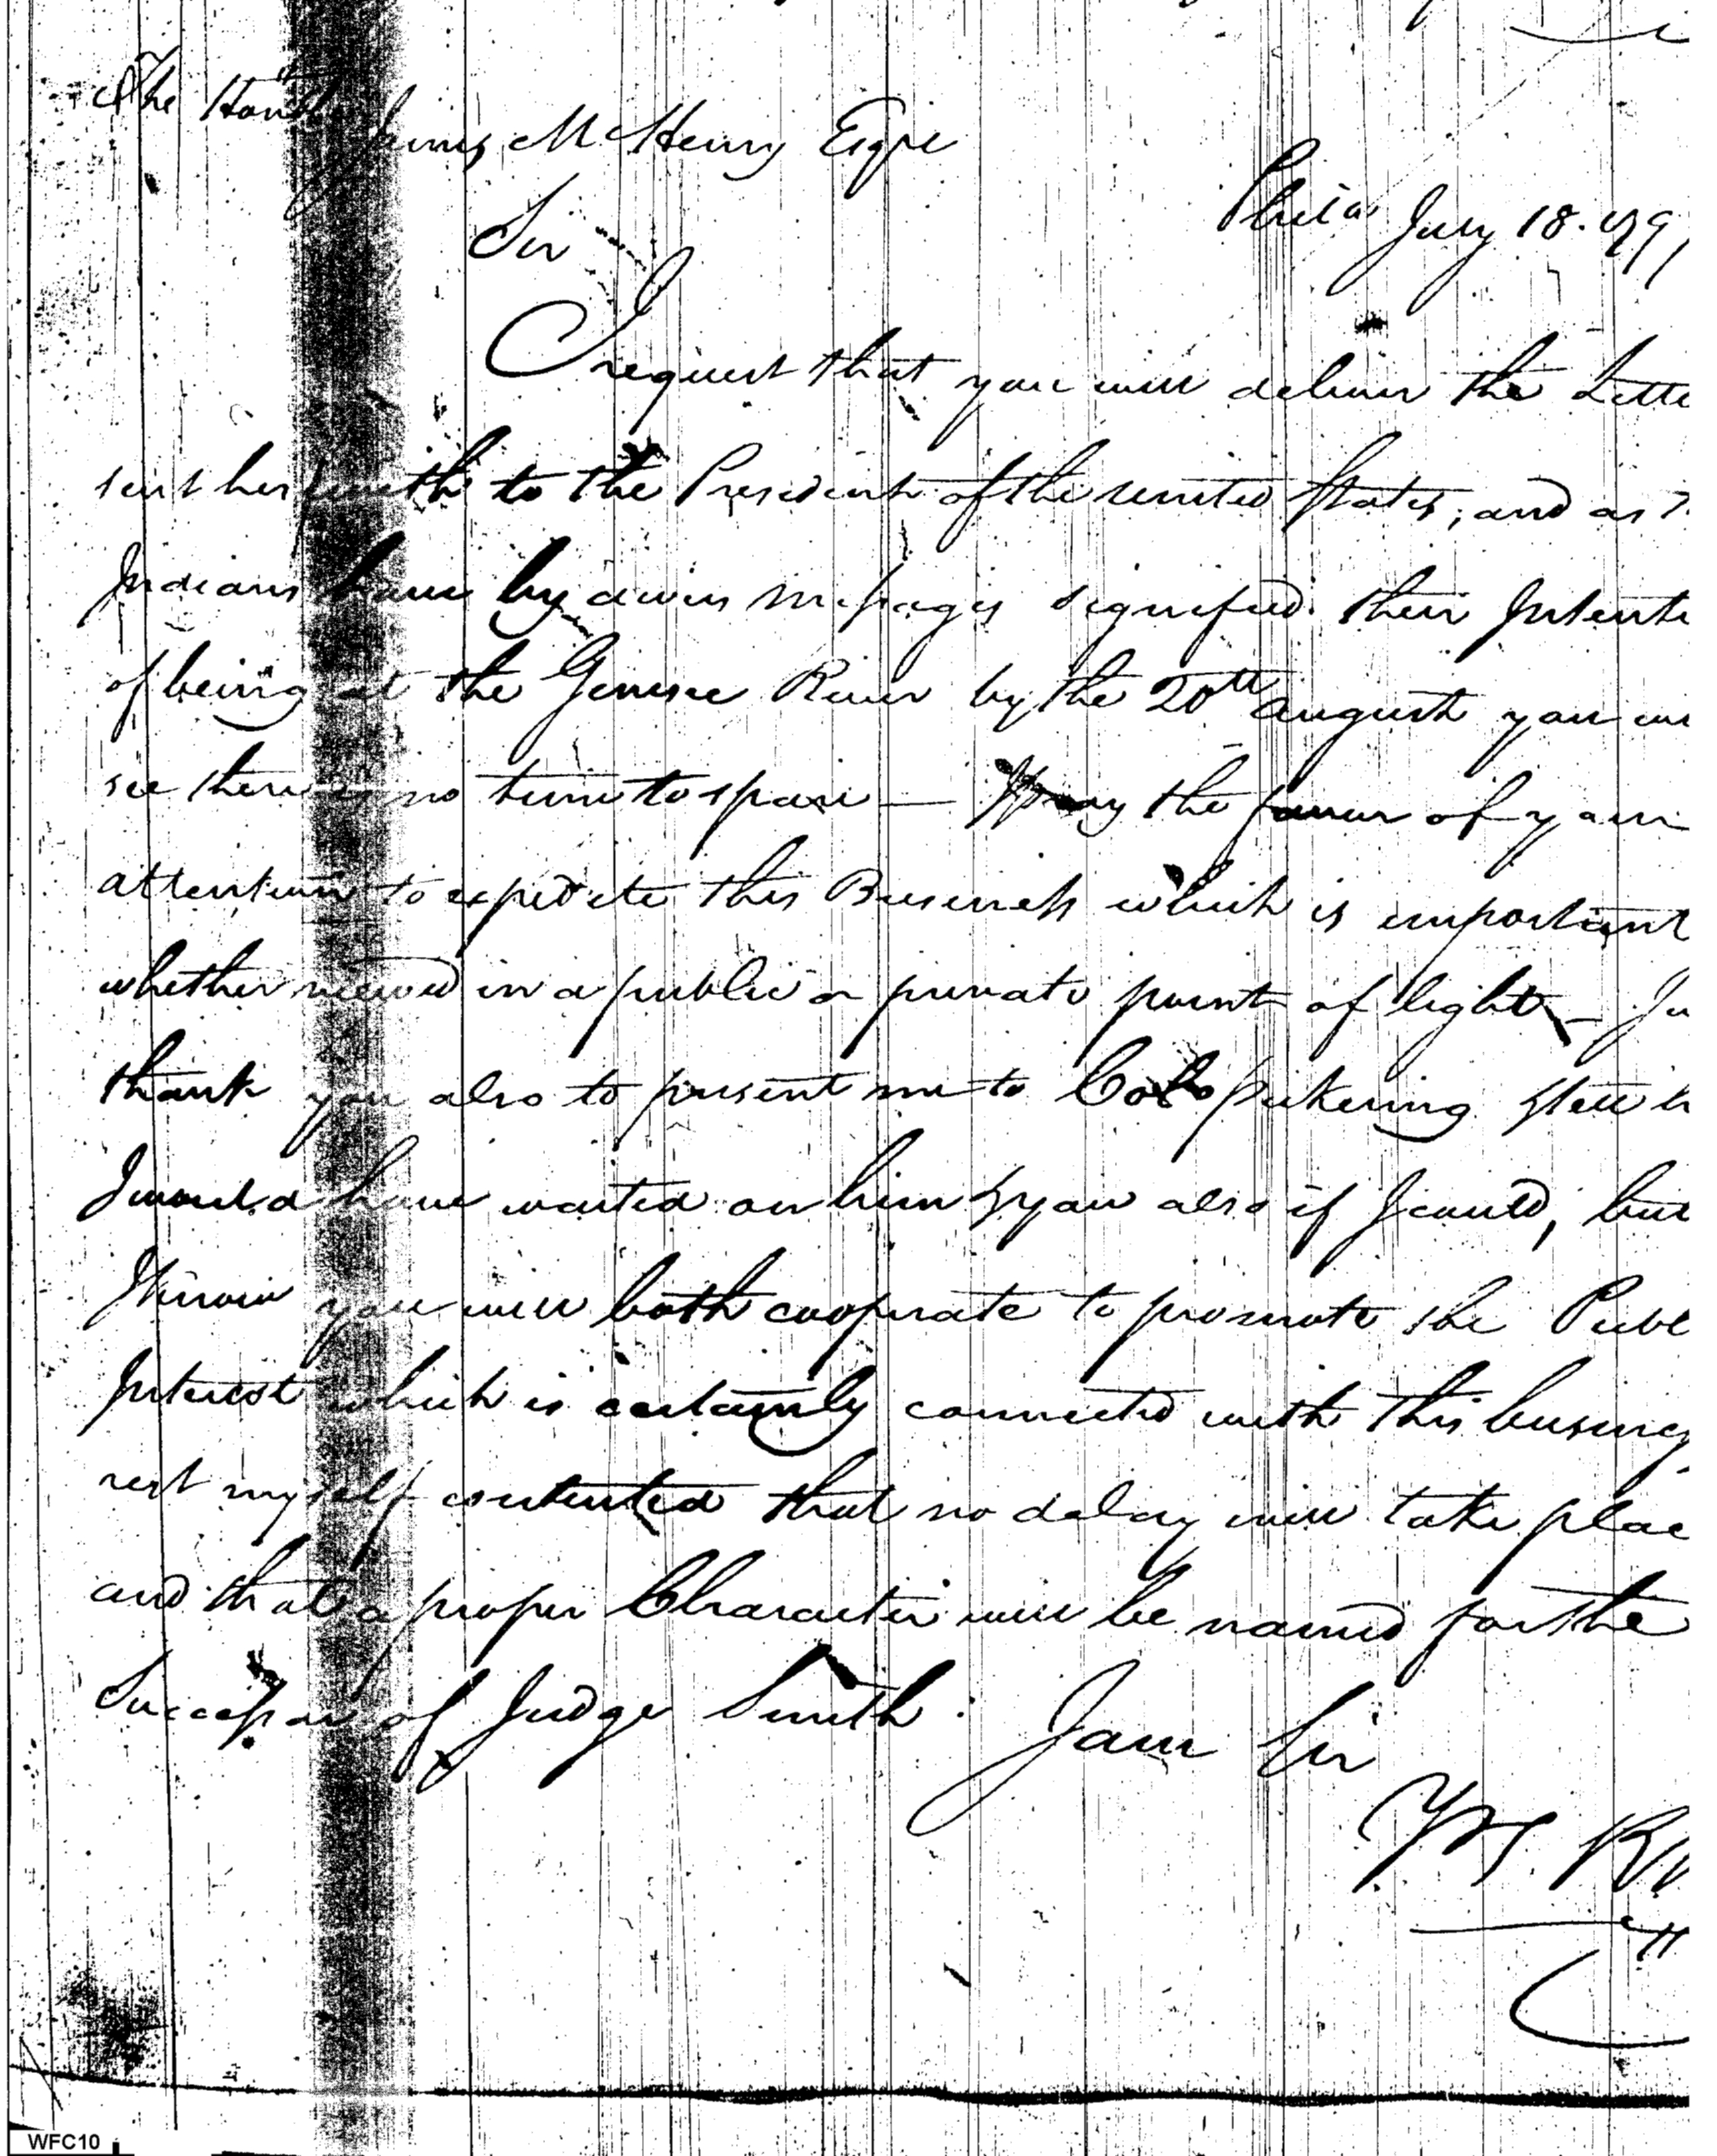 The Honble
James McHenry Esqre
Phila July 18. 179
Sir
I request that you will deliver the Lette
sent herewith to the President of the united States, and as
Indians have by divers messages signified their Intenti
of being at the Genesee River by the 20th august you wi
see there is no time to spare — the favour of your
attention to expedite this Business which is important
whether viewed in a public or private point of light —
thank you also to present me to Colo Pickering
I would have waited on him & you also if I could, but
I know you will both cooperate to promote the Publ
Interest which is certainly connected with this busines
rest myself contented that no delay will take plac
and that a proper Character will be named for the
Successor of Judge Smith.
I am Sir
WFC10